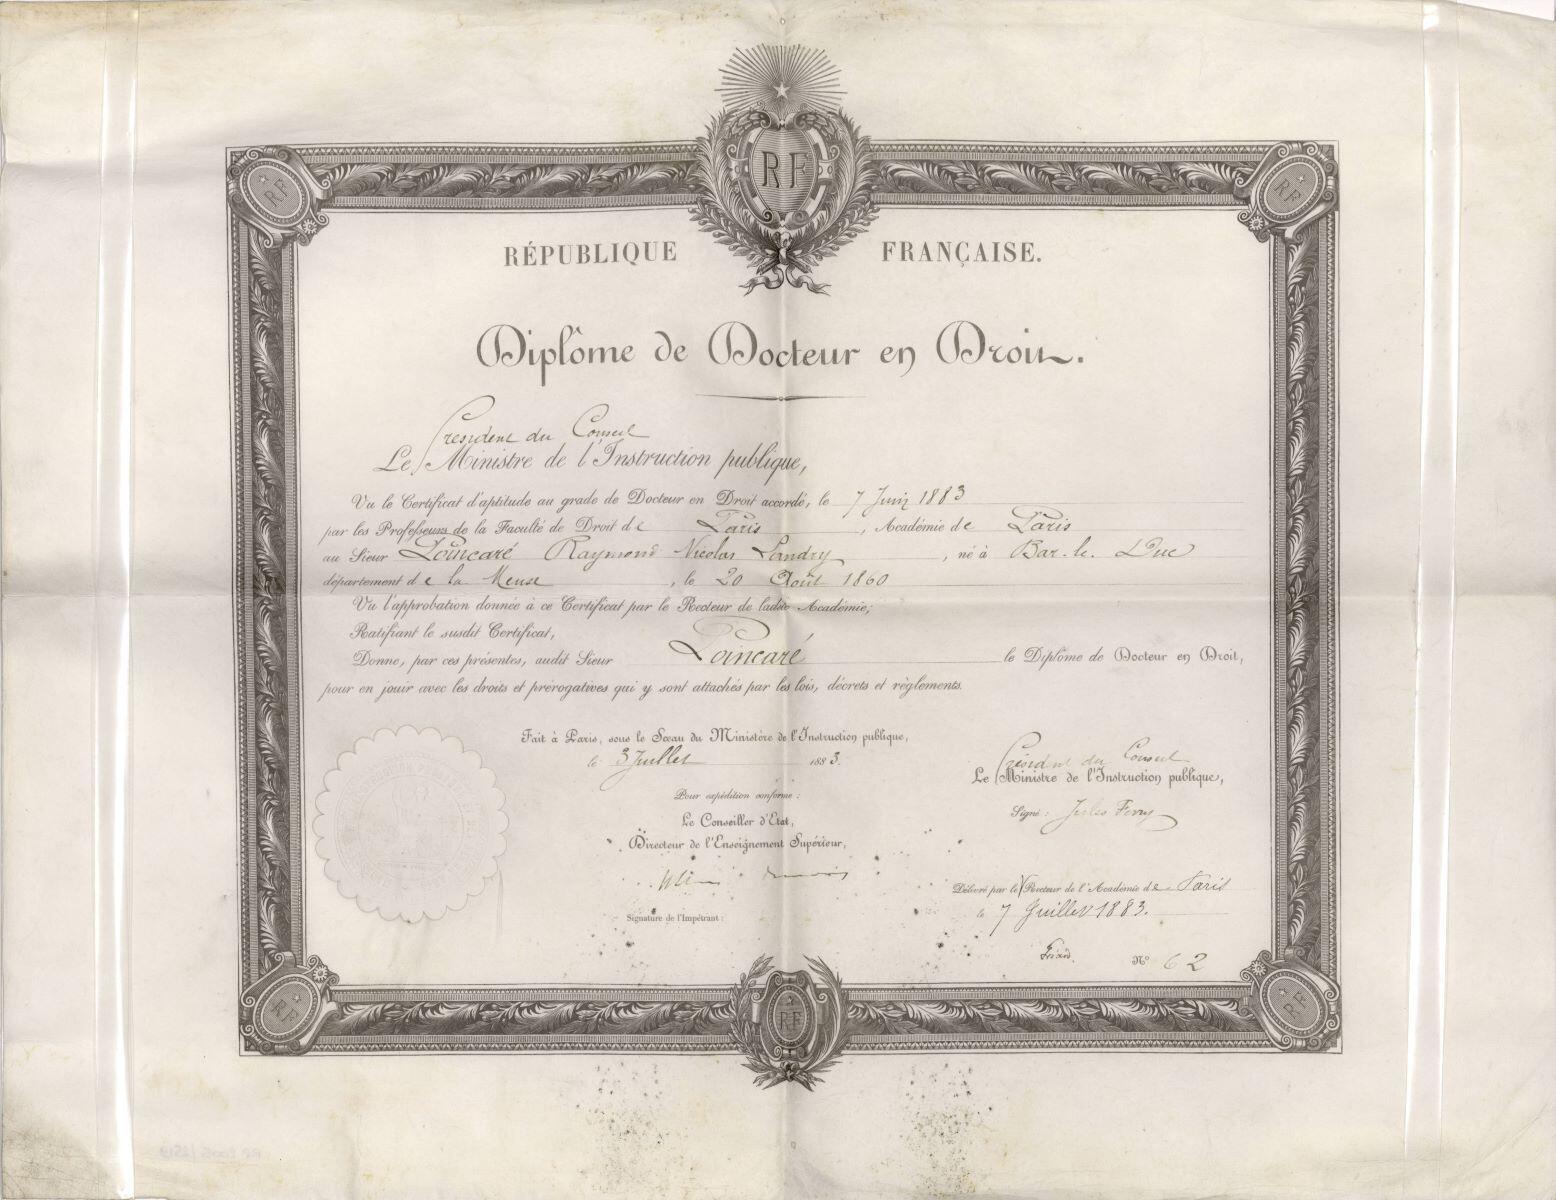 RF
RF
RF
RÉPUBLIQUE FRANÇAISE.
Diplôme de Docteur en Droit.
Président du Conseil
Le Ministre de l'Instruction publique,
Vu le Certificat d'aptitude au grade de Docteur en Droit accordé, le 7 Juin 1883
par les Professeurs de la Faculté de Droit de Paris, Académie de Paris
au Sieur Poincaré Raymond Nicolas Landry, né à Bar-le-Duc
département de la Meuse, le 20 Août 1860
Vu l'approbation donnée à ce Certificat par le Recteur de ladite Académie;
Ratifiant le susdit Certificat,
Donne, par ces présentes, audit Sieur Poincaré le Diplôme de Docteur en Droit,
pour en jouir avec les droits et prérogatives qui y sont attachés par les lois, décrets et règlements.
Fait à Paris, sous le Sceau du Ministère de l'Instruction publique,
le 3 Juillet 1883.
Pour expédition conforme:
Le Conseiller d'Etat,
Directeur de l'Enseignement Supérieur,
Signature de l'Impétrant:
Président du Conseil
Le Ministre de l'Instruction publique,
Signé: Jules Ferry
Délivré par le Recteur de l'Académie de Paris
le 7 Juillet 1883.
N° 62
RF
RF
RF